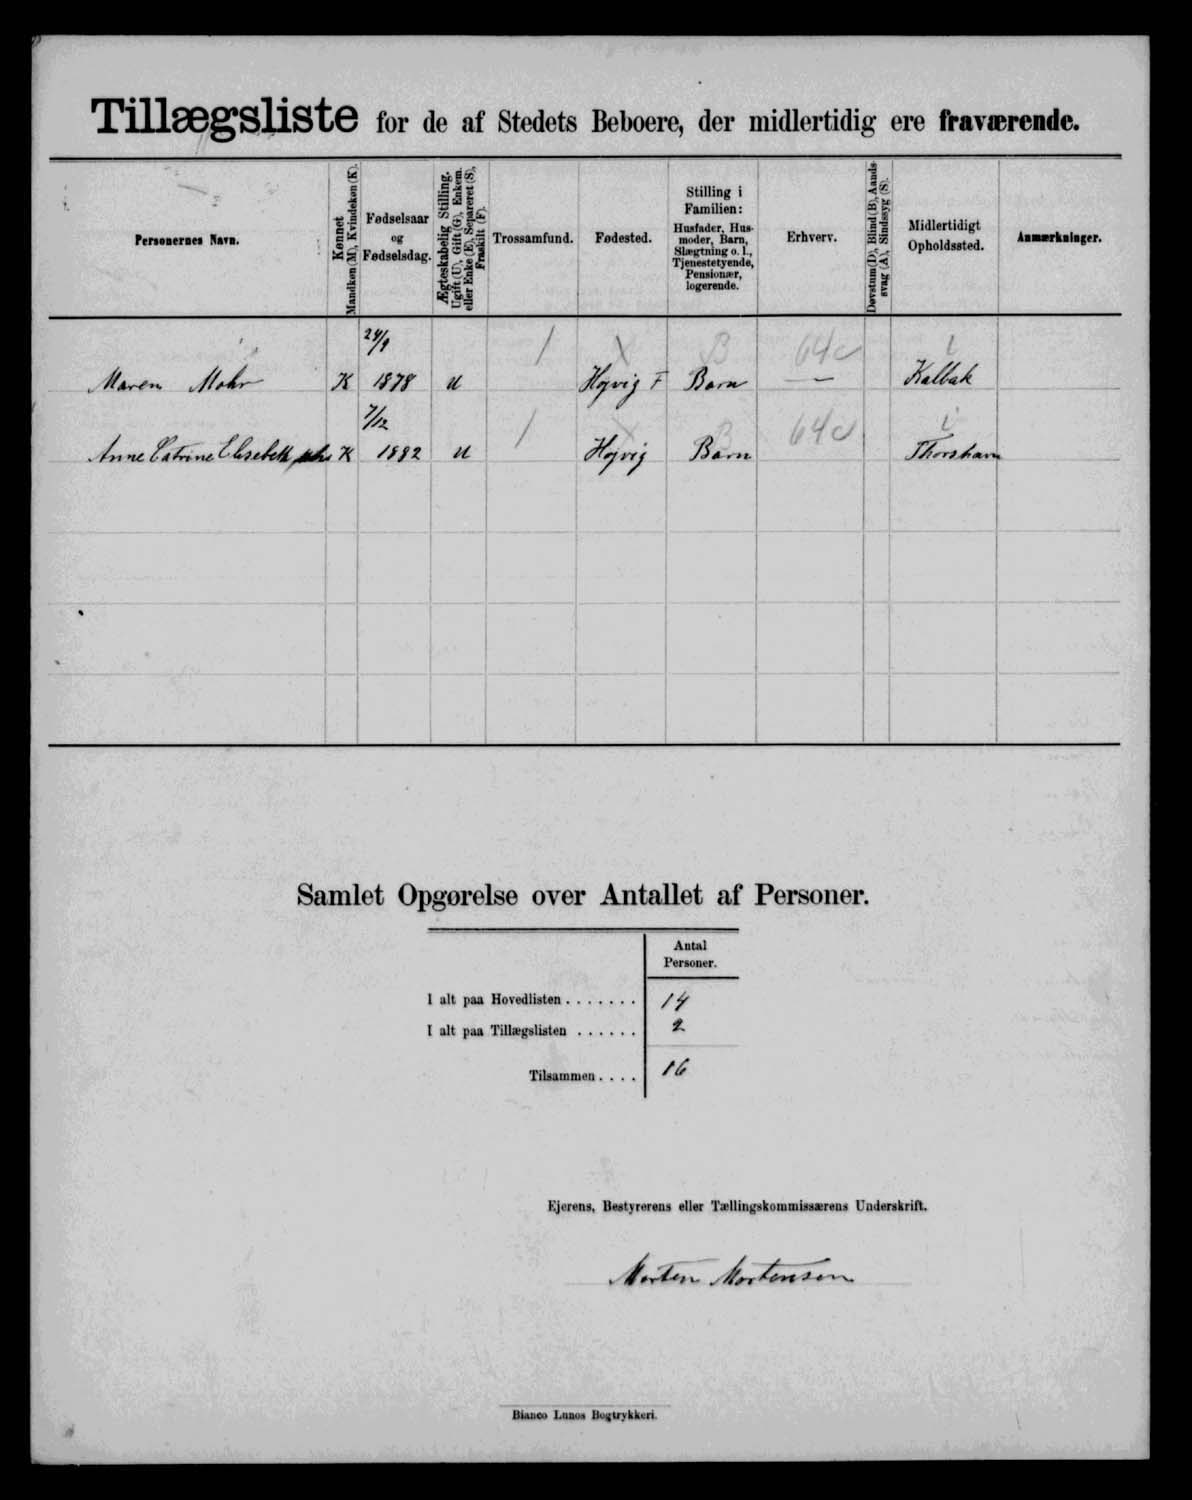 Tillægsliste for de af Stedets Beboere, der midlertidig ere fraværende.
Personernes Navn.
Kønnet
Mandkøn (M), Kvindekøn (K).
Fødselsaar
og
Fødselsdag.
Ægteskabelig Stilling.
Ugift (U), Gift (G), Enkem.
eller Enke (E), Separeret (S),
Fraskilt (F).
Trossamfund.
Fødested.
Stilling i
Familien:
Husfader, Hus-
moder, Barn,
Slægtning o. l.,
Tjenestetyende,
Pensionær,
logerende.
Erhverv.
Døvstum (D), Blind (B), Aands-
svag (A), Sindssyg (S).
Midlertidigt
Opholdssted.
Anmærkninger.
24/9 / X B 64c i
Maren Mohr K 1878 U Højvig F Barn — Kalbak
7/12 / X B 64c i
Anne Catrine Elisebeth K 1882 U Højvig Barn Thorshavn
Samlet Opgørelse over Antallet af Personer.
Antal
Personer.
I alt paa Hovedlisten . . . . . . . 14
I alt paa Tillægslisten . . . . . . 2
Tilsammen . . . . 16
Ejerens, Bestyrerens eller Tællingskommissærens Underskrift.
Morten Mortensen
Bianco Lunos Bogtrykkeri.